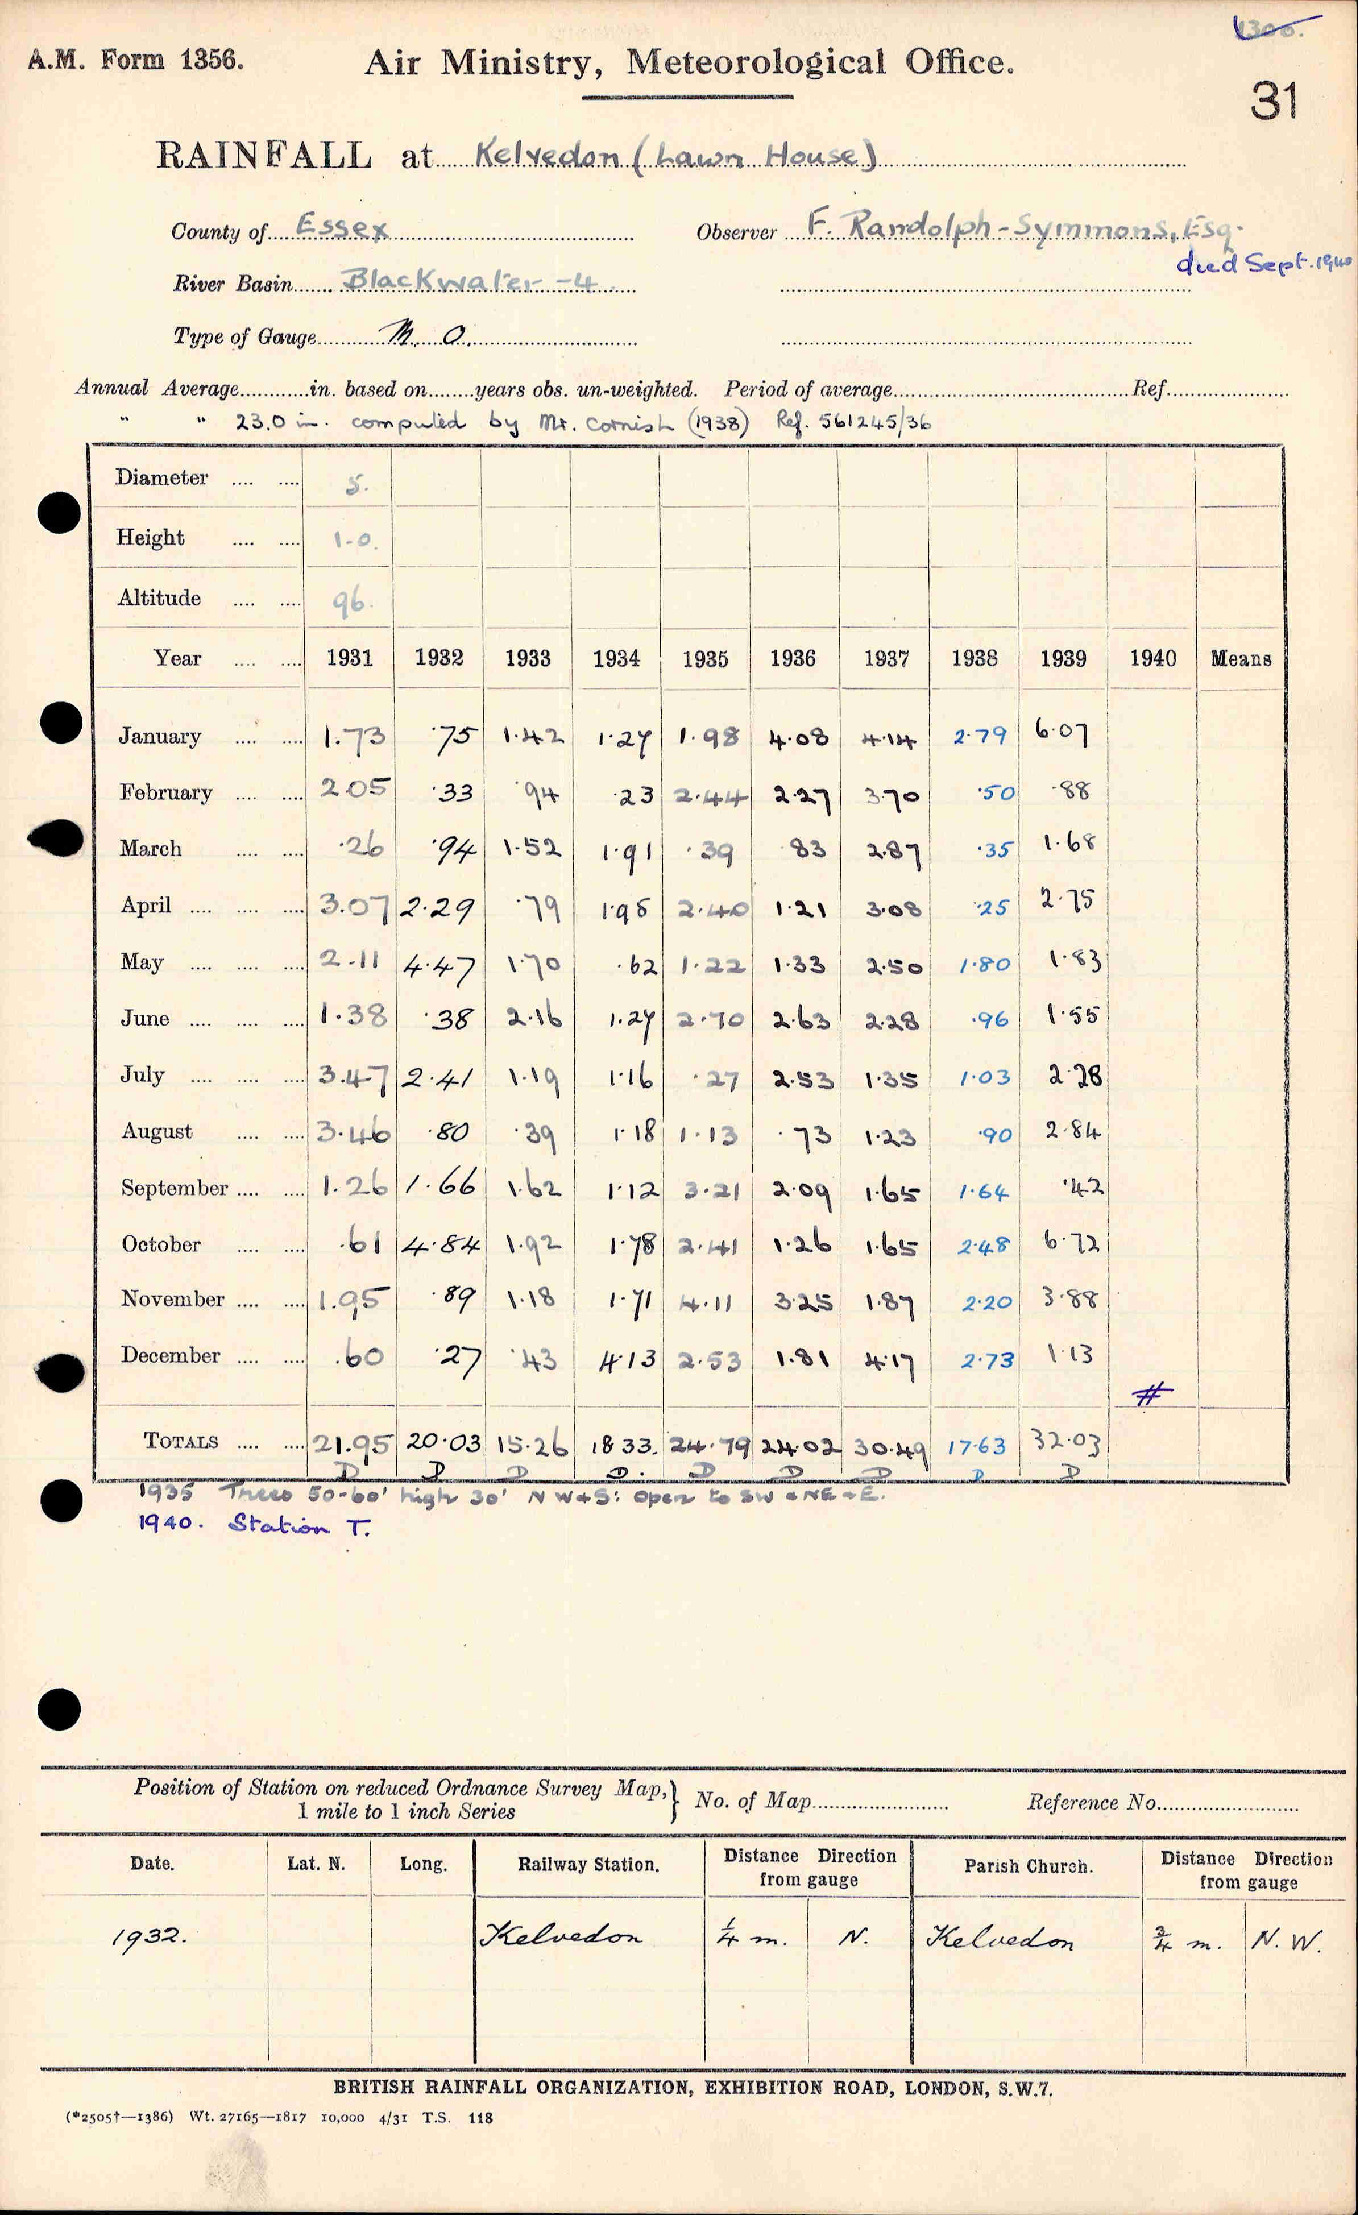 1306.
A.M. Form 1356.
Air Ministry, Meteorological Office.
31
RAINFALL at Kelvedon (Lawn House)
County of Essex Observer F. Randolph-Symmons, Esq.
died Sept. 1940
River Basin Blackwater -4
Type of Gauge M. O.
Annual Average............in. based on........years obs. un-weighted. Period of average............Ref............
" " 23.0 in. computed by Mr. Cornish (1938) Ref. 561245/36
Diameter .... .... 5.
Height .... .... 1-0.
Altitude .... .... 96.
Year .... .... 1931 1932 1933 1934 1935 1936 1937 1938 1939 1940 Means
January .... .... 1.73 ·75 1·42 1·27 1·98 4·08 4·14 2·79 6·07
February .... .... 2.05 ·33 ·94 ·23 2·44 2·27 3·70 ·50 ·88
March .... .... ·26 ·94 1·52 1·91 ·39 ·83 2·87 ·35 1·68
April .... .... .... 3.07 2·29 ·79 1·95 2·40 1·21 3·08 ·25 2·75
May .... .... .... 2·11 4·47 1·70 ·62 1·22 1·33 2·50 1·80 1·83
June .... .... .... 1·38 ·38 2·16 1·27 2·70 2·63 2·28 ·96 1·55
July .... .... .... 3.47 2·41 1·19 1·16 ·27 2·53 1·35 1·03 2·28
August .... .... 3·46 ·80 ·39 1·18 1·13 ·73 1·23 ·90 2·84
September .... .... 1.26 1·66 1·62 1·12 3·21 2·09 1·65 1·64 ·42
October .... .... ·61 4·84 1·92 1·78 2·41 1·26 1·65 2·48 6·72
November .... .... 1.95 ·89 1·18 1·71 4·11 3·25 1·87 2·20 3·88
December .... .... .60 ·27 ·43 4·13 2·53 1·81 4·17 2·73 1·13
#
TOTALS .... .... 21.95 20·03 15·26 18 33. 24·79 24·02 30·49 17·63 32·03
D D D D. D D D D D
1935 Trees 50-60' high 30' N W+S: open to SW + NE + E.
1940. Station T.
Position of Station on reduced Ordnance Survey Map,} No. of Map........................ Reference No.........................
1 mile to 1 inch Series
Date. Lat. N. Long. Railway Station. Distance Direction from gauge Parish Church. Distance Direction from gauge
1932. Kelvedon ¼ m. N. Kelvedon ¾ m. N. W.
BRITISH RAINFALL ORGANIZATION, EXHIBITION ROAD, LONDON, S.W.7.
(*2505†—1386) Wt. 27165—1817 10,000 4/31 T.S. 118